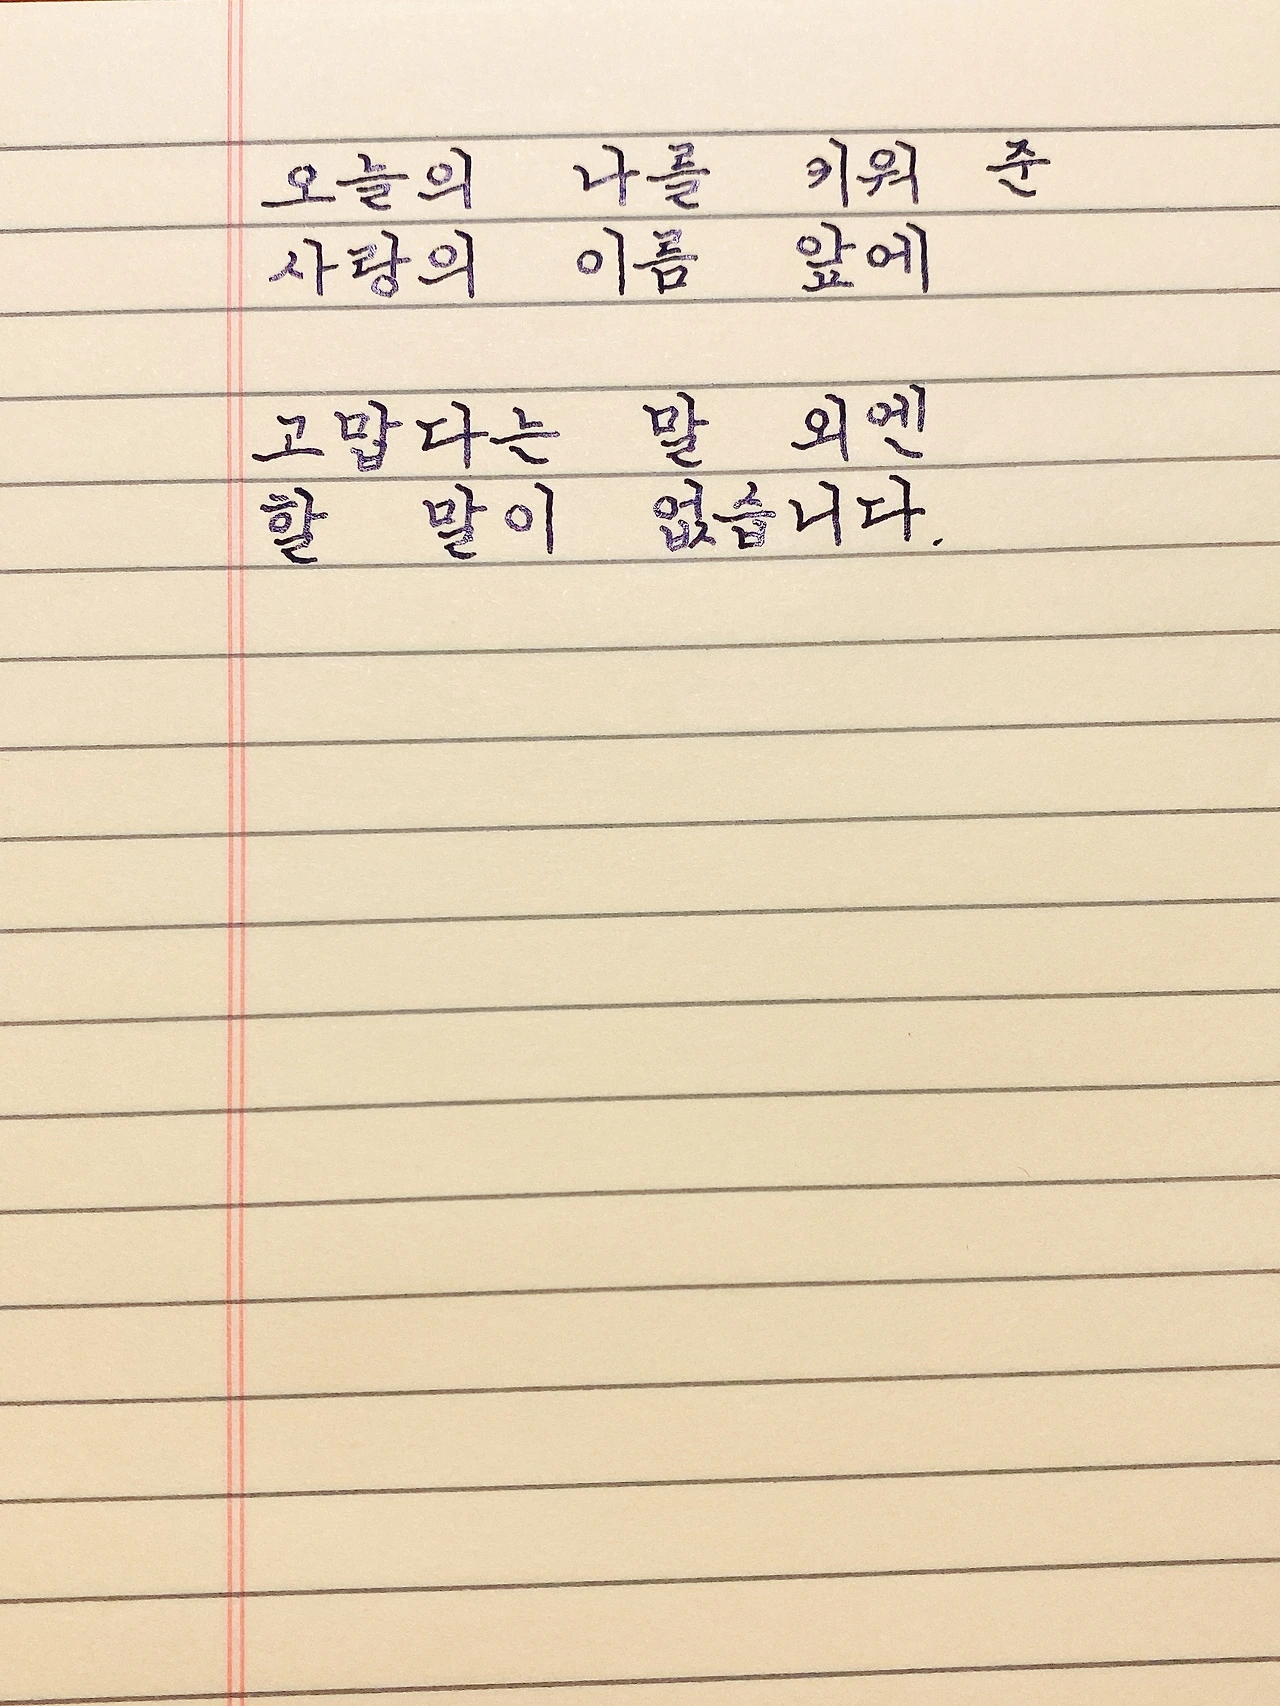 오늘의 나를 키워 준
사랑의 이름 앞에
고맙다는 말 외엔
할 말이 없습니다.